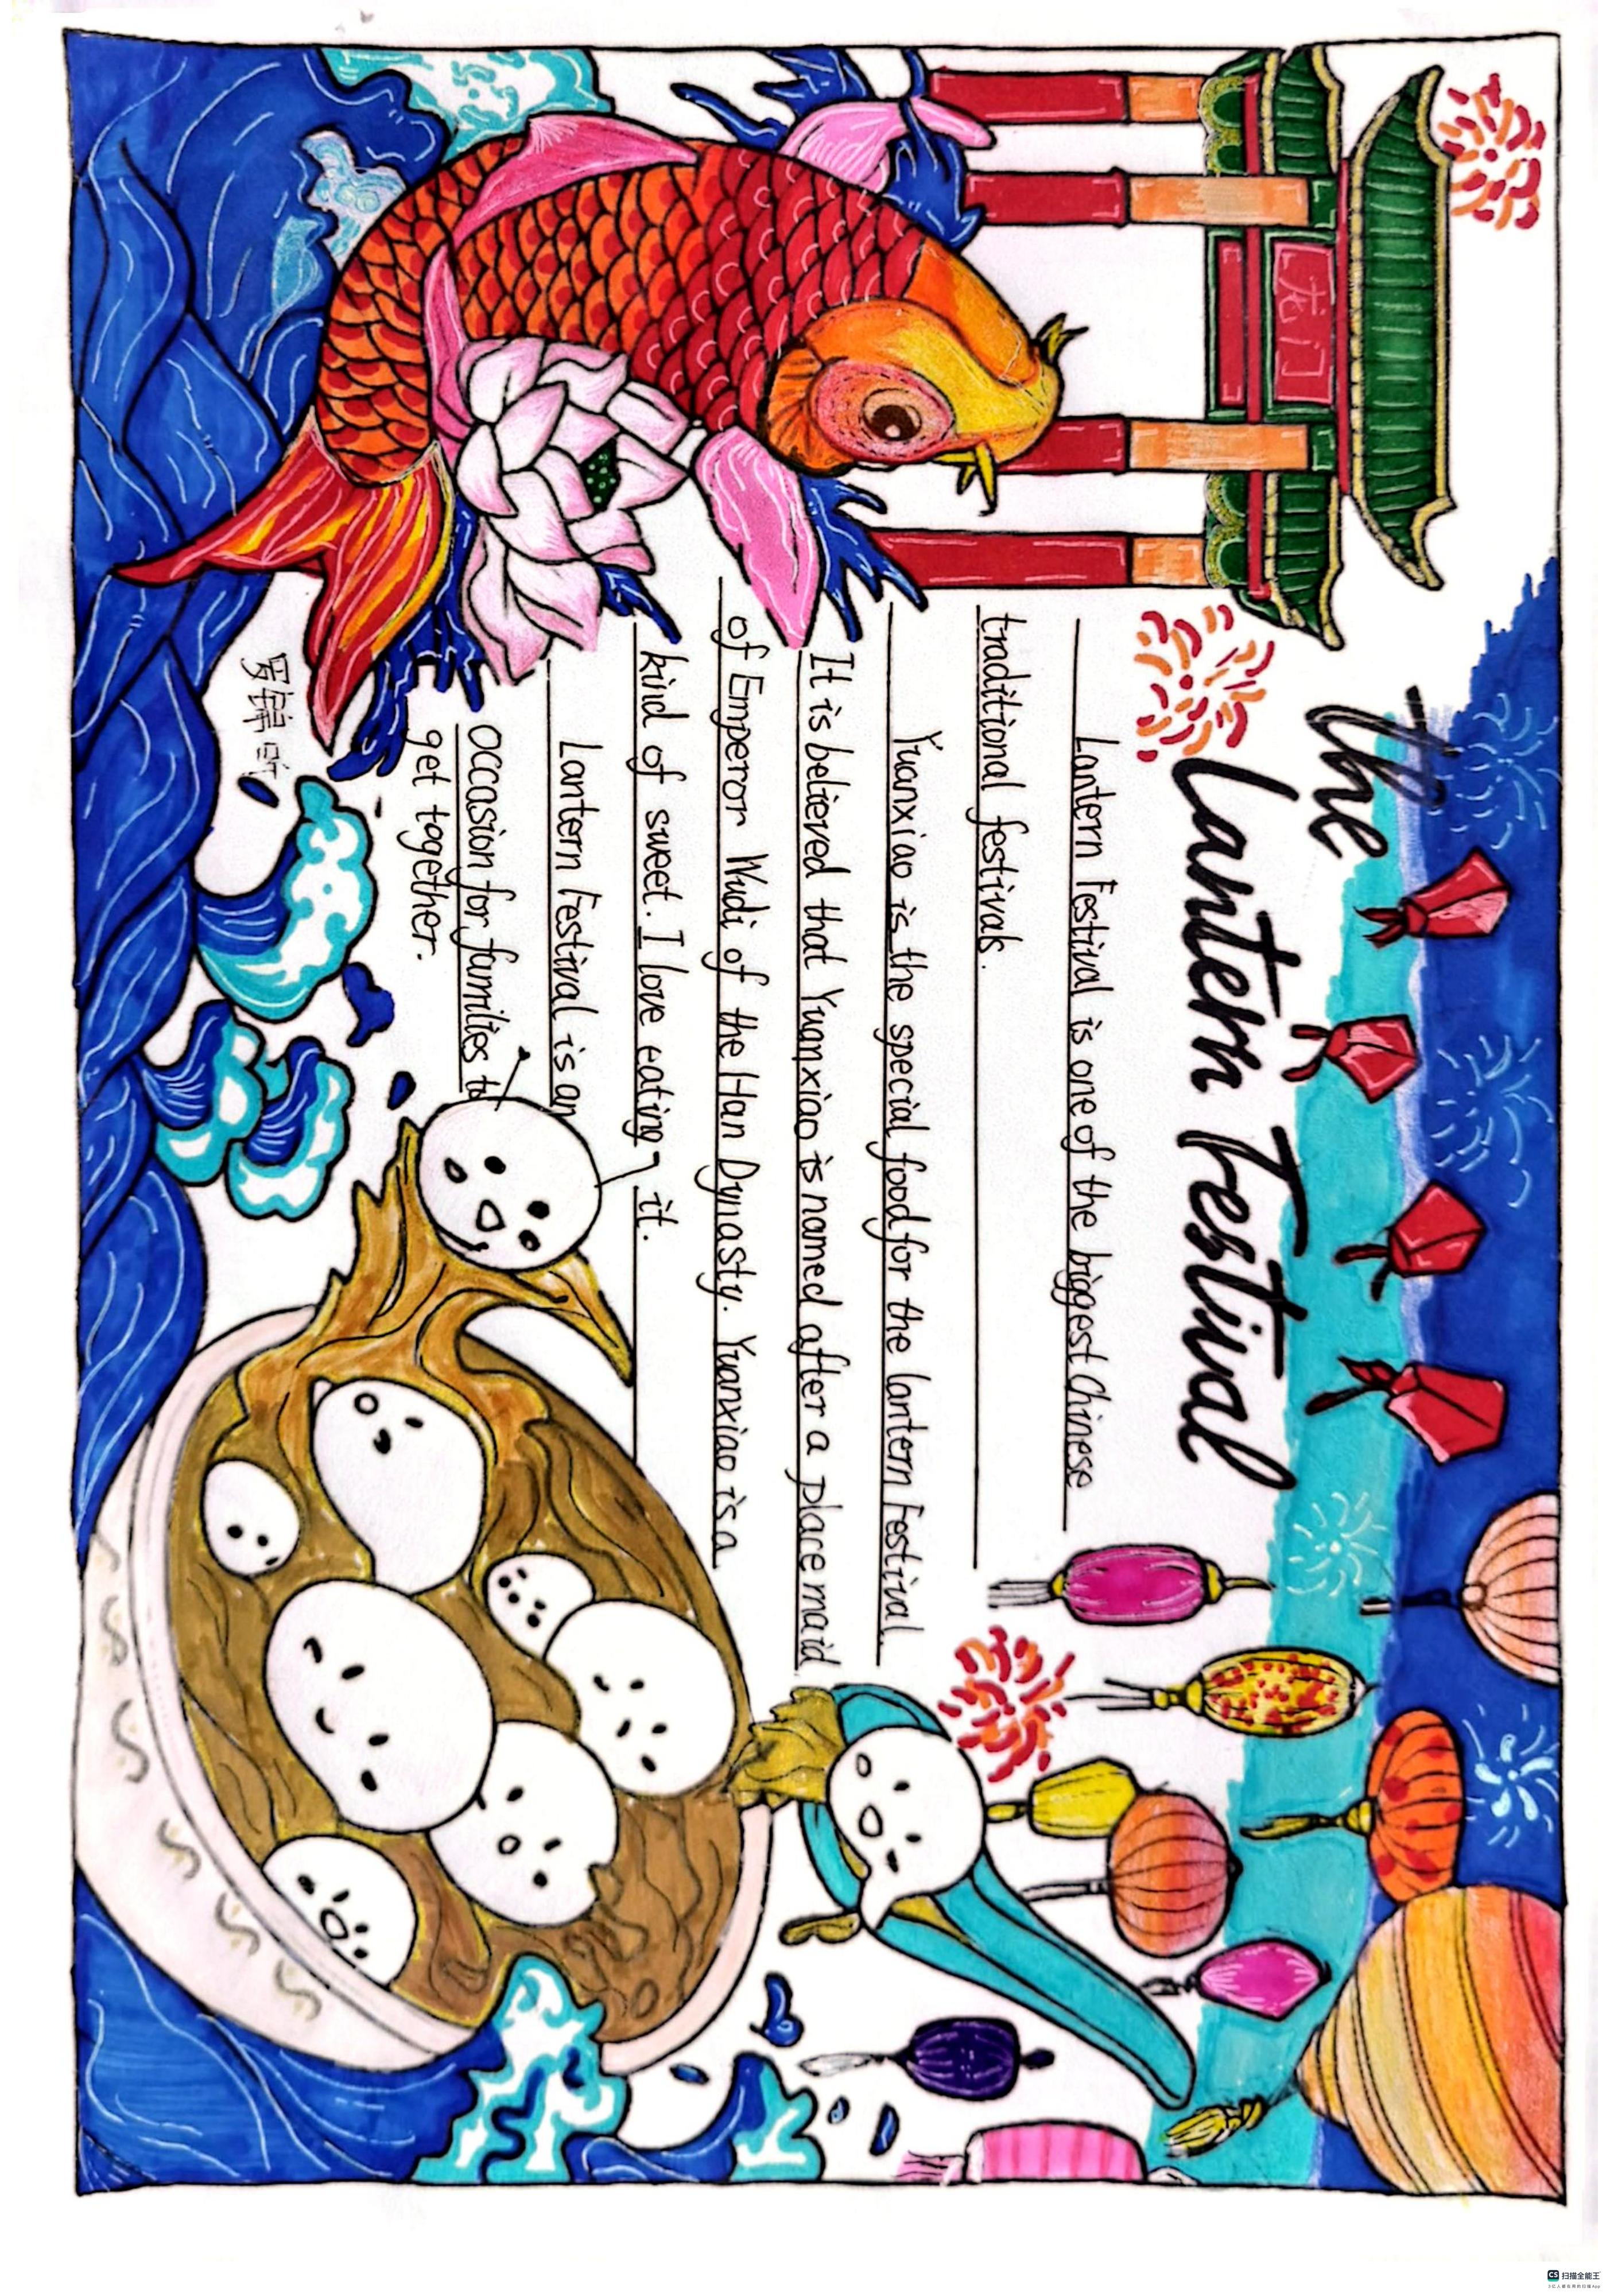 the
Lantern Festival
Lantern Festival is one of the biggest Chinese
traditional festivals.
Yuanxiao is the special food for the lantern Festival.
It is believed that Yuanxiao is named after a place maid
of Emperor Wudi of the Han Dynasty. Yuanxiao is a
kind of sweet. I love eating it.
Lantern Festival is an
occasion for families to
get together.
龙门
CS 扫描全能王
3亿人都在用的扫描App